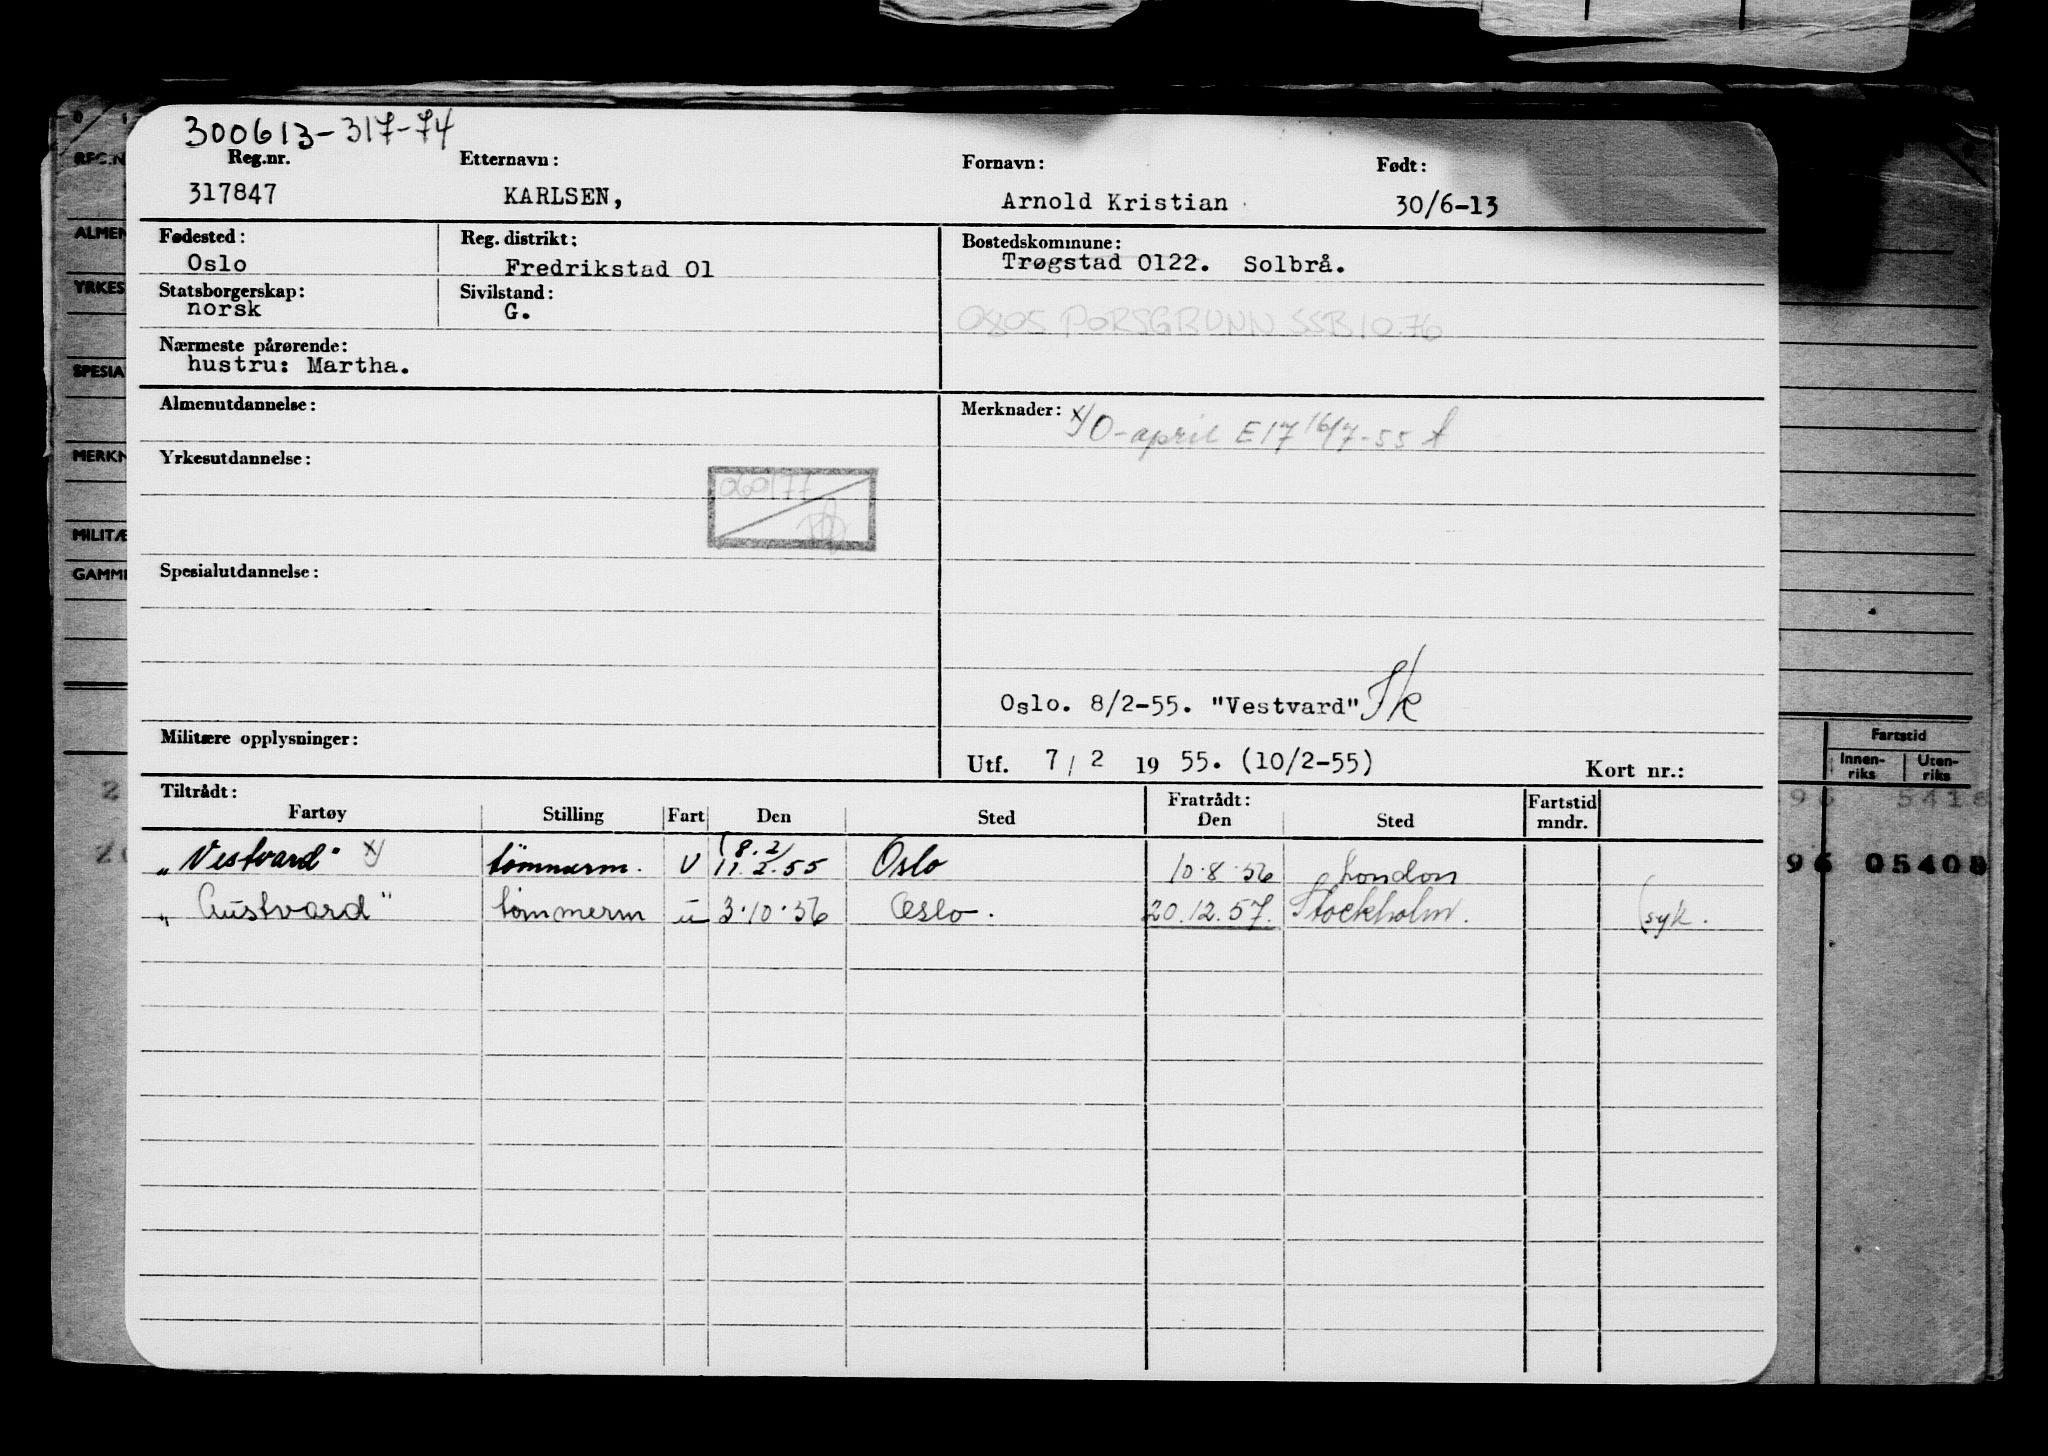 300613-317-74
Reg.nr. Etternavn: Fornavn: Født:
317847 KARLSEN, Arnold Kristian 30/6-13
Fødested: Reg. distrikt: Bostedskommune:
Oslo Fredrikstad 01 Trøgstad 0122. Solbrå.
Statsborgerskap: Sivilstand:
norsk G.
0805 PORSGRUNN SSB 10.76
Nærmeste pårørende:
hustru: Martha.
Almenutdannelse: Merknader: x/ O-april E17 16/7-55
Yrkesutdannelse:
Spesialutdannelse:
Oslo. 8/2-55. "Vestvard"
Militære opplysninger:
Utf. 7/2 1955. (10/2-55) Kort nr.:
Tiltrådt: Fratrådt: Fartstid mndr.
Fartøy Stilling Fart Den Sted Den Sted
(8.2)
"Vestvard" x/ tømmerm. U 11.2.55 Oslo 10.8.56 London
"Austvard" tømmerm u 3.10.56 Oslo. 20.12.57. Stockholm. (syk.
REG.N
ALMEN
YRKES
SPESIA
MERKN
MILITÆ
GAMM
Fartstid
Innen-riks Uten-riks
96 5418
96 05408